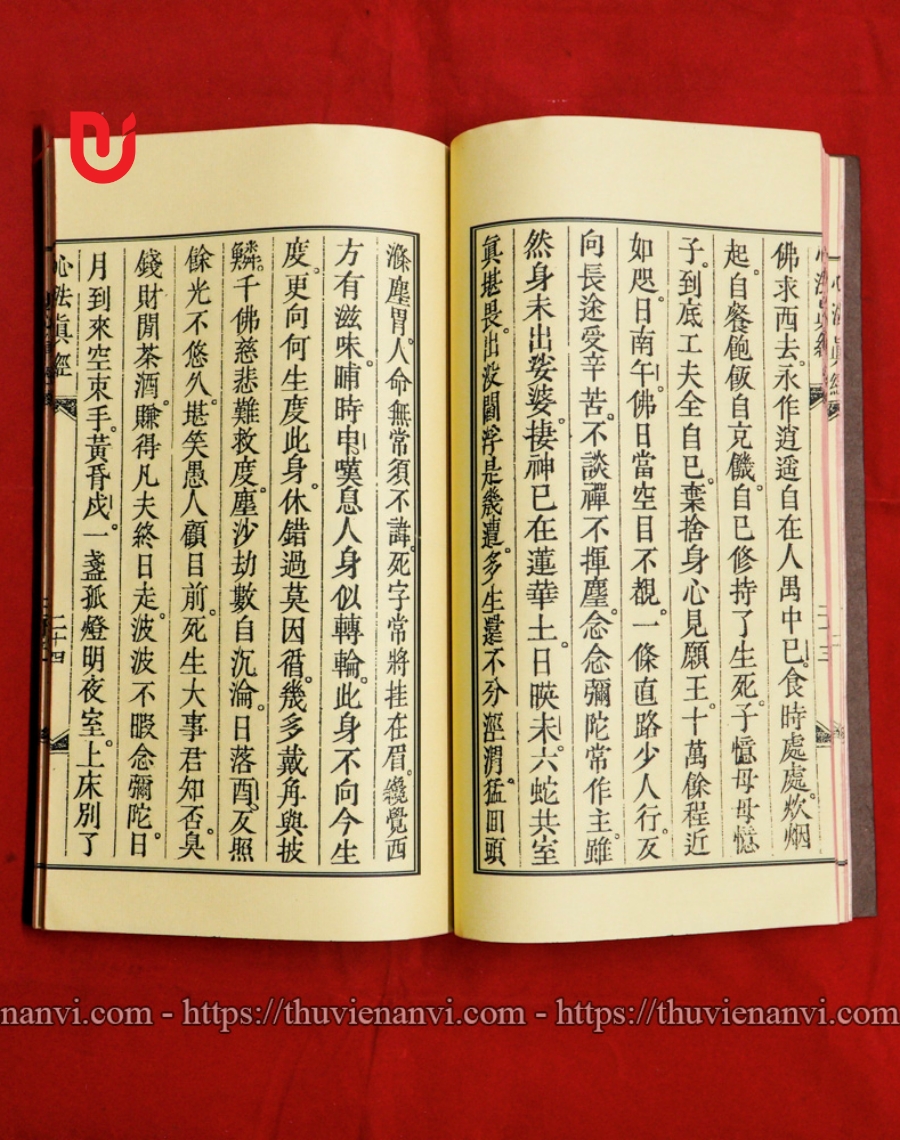 佛求西去。永作逍遥自在人禺中巳。食時處處。炊烟
起。自餐飽飯自克饑。自己修持了生死。子憶母母憶
子。到底工夫全自己。棄捨身心見願王。十萬餘程近
如咫。日南午。佛日當空目不覩。一條直路少人行。反
向長途受辛苦。不談禪不揮麈。念念彌陀常作主。雖
然身未出娑婆。棲神已在蓮華土。日昳未。六蛇共室
眞堪畏。出沒閻浮是幾遭。多生還不分涇渭。猛回頭
滌塵胃。人命無常須不諱。死字常將挂在眉。纔覺西
方有滋味。晡時申嘆息人身似轉輪。此身不向今生
度。更向何生度此身。休錯過莫因循。幾多戴角與披
鱗。千佛慈悲難救度。塵沙劫數自沉淪。日落酉。反照
餘光不悠久。堪笑愚人顧目前。死生大事君知否。臭
錢財閒茶酒。賺得凡夫終日走。波波不暇念彌陀。日
月到來空束手。黃昏戍。一盞孤燈明夜室。上床別了
心法眞經
二十四
https://thuvienanvi.com